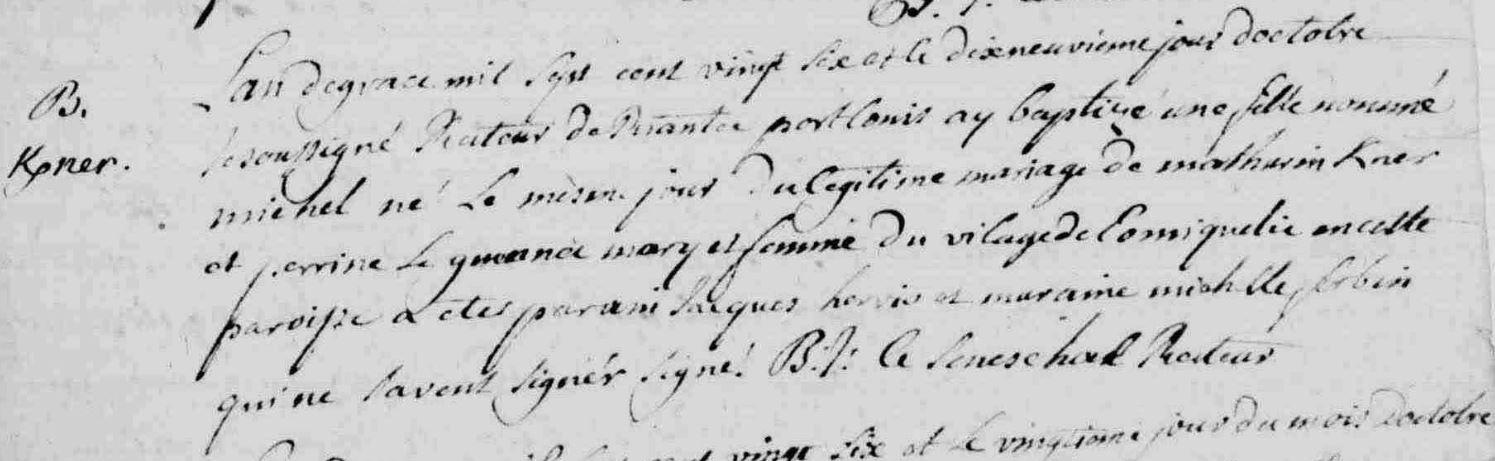 B.
Kner.
Lan de grace mil sept cent vingt six et le dixneuvieme jour doctobre
Je soussigné Recteur de Riantec port Louis ay baptizé une fille nommé
michel né le mesme jour du legitime mariage de mathurin Kner
et perrine Le guennec mary et femme du vilage de Lomiquelic en cette
paroisse a etes parain Jacques hervio et maraine michelle
qui ne savent signér signé: B: J: Le Seneschal Recteur
vingt six et Le vingtieme jour du mois Doctobre